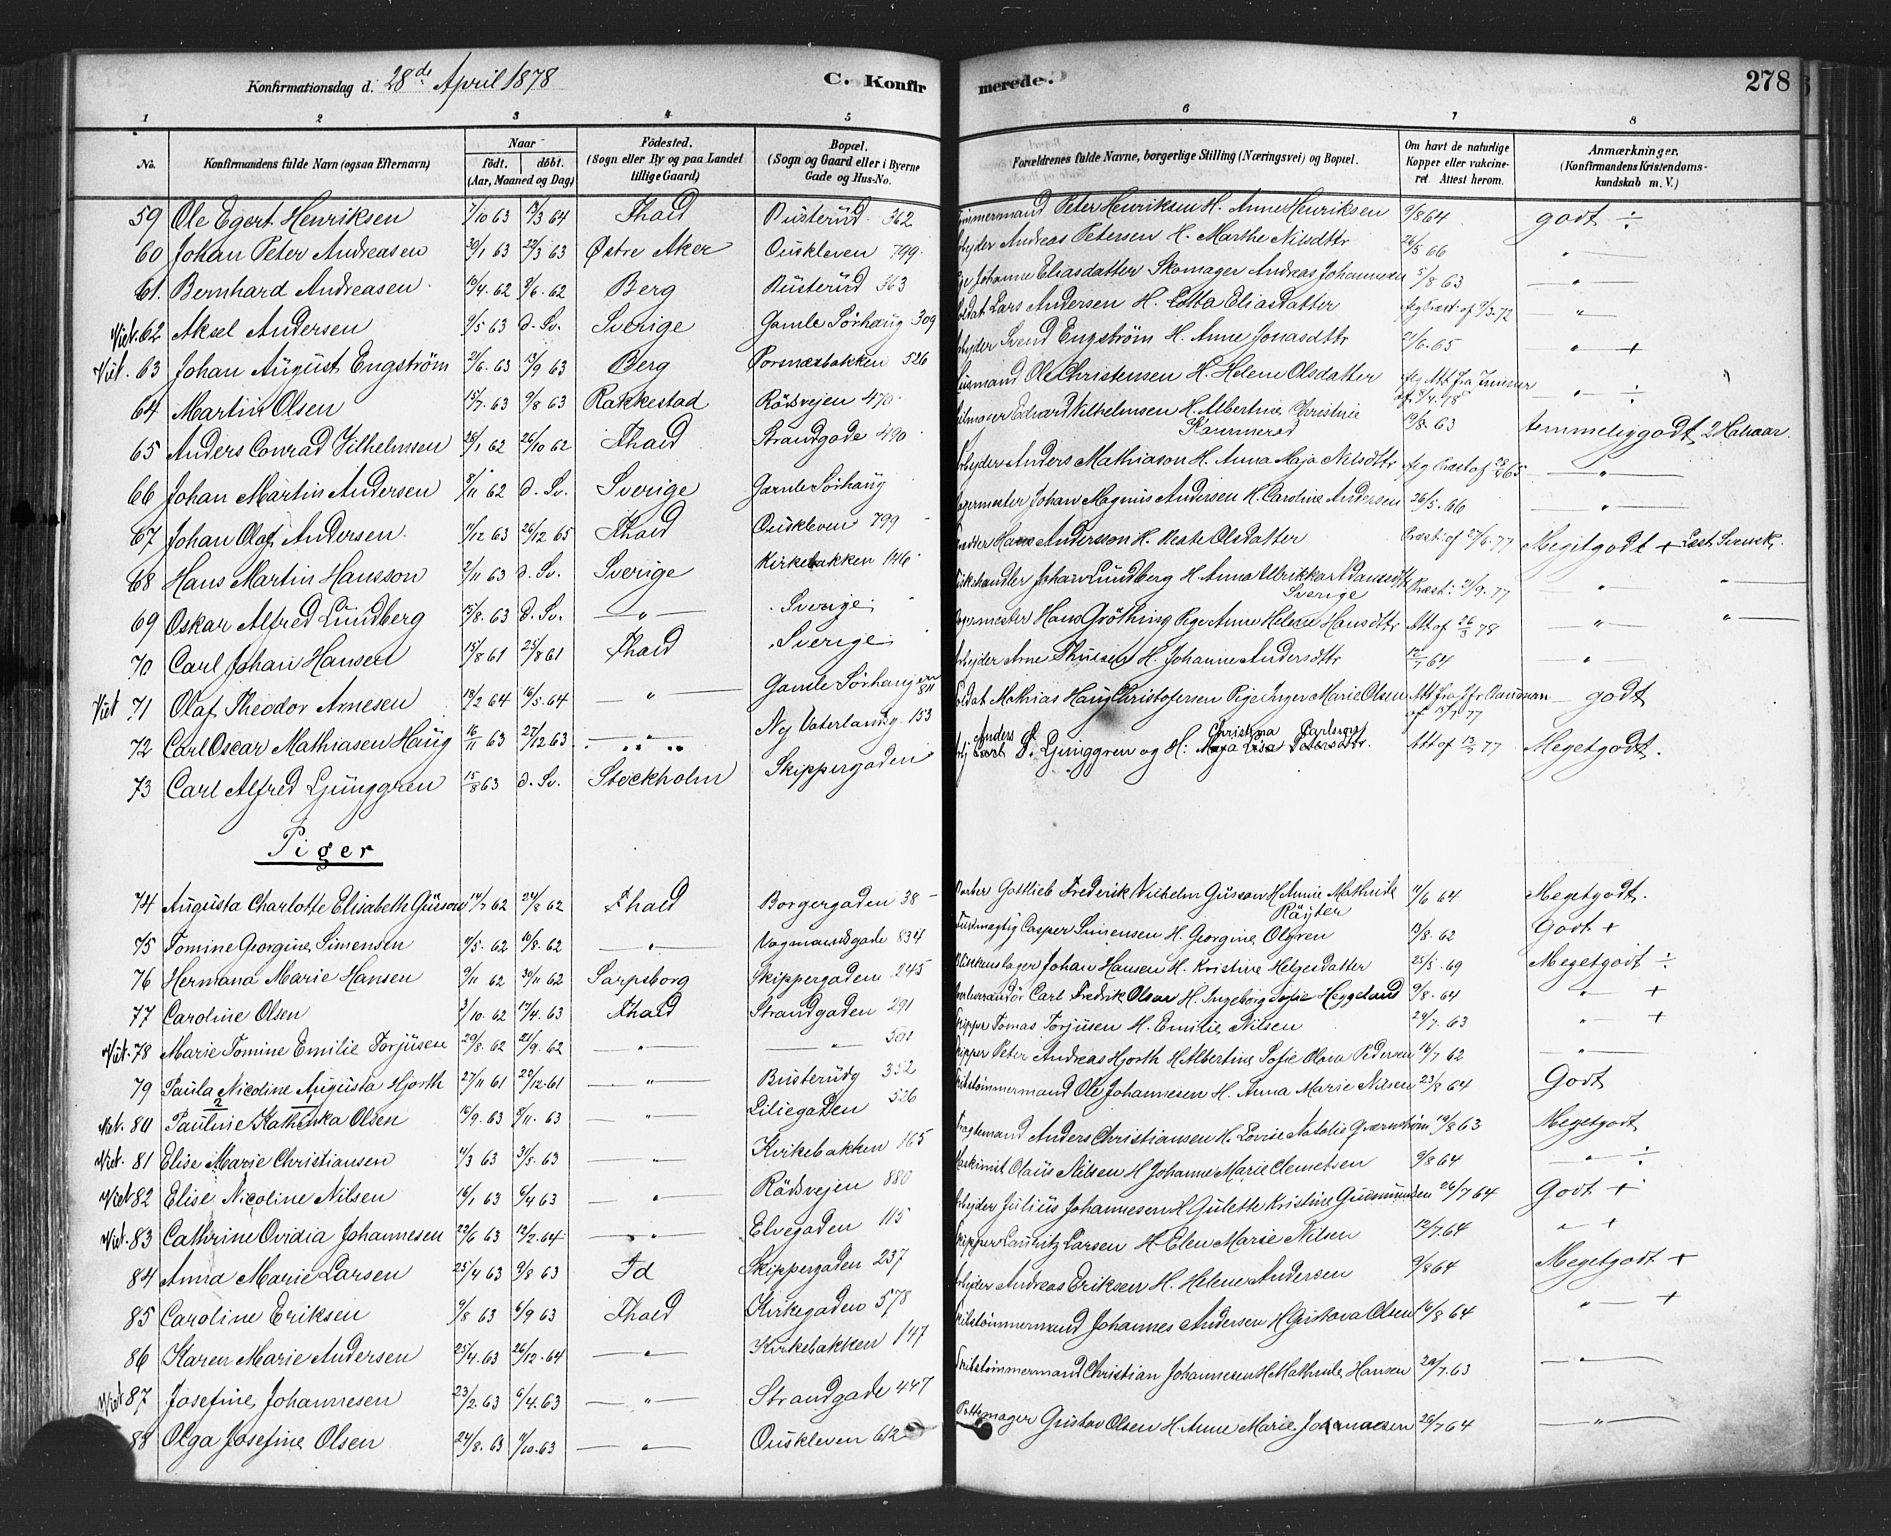 Konfirmationsdag d. 28de April 1878 C. Konfir merede. 278
1 2 3 4 5 6 7 8
No. Konfirmandens fulde Navn (ogsaa Efternavn) Naar født. døbt. (Aar, Maaned og Dag) Fødested. (Sogn eller By og paa Landet tillige Gaard) Bopæl. (Sogn og Gaard eller i Byerne Gade og Hus-No. Forældrenes fulde Navne, borgerlige Stilling (Næringsvei) og Bopæl. Om havt de naturlige Kopper eller vakcineret. Attest herom. Anmærkninger. (Konfirmandens Kristendomskundskab m. V.)
59 Ole Egert Henriksen 7/10 63 /3 64 Fhald Busterud 362 Tømmermand Peter Henriksen H. Anne Henriksen 9/8 64 godt ÷
60 Johan Peter Andreasen 30/1 63 22/3 63 Østre Aker Ouskleven 799 Andreas Petersen H. Marthe Nilsdttr 26/5 66 "
61. Bernhard Andreasen 10/4 62 9/6 62 Berg Busterud 363 Johanne Eliasdatter Skomager Andreas Johannesen 5/8 63 "
Viet. 62 Aksel Andersen 9/5 63 d. Sv. Sverige Gamle Sørhaug 309 Lars Andersen H. Lotta Eliasdatter 9/3 72 "
Viet. 63 Johan August Engström 21/6 63 13/9 63 Berg Porsnæsbakken 526 Svend Engstrøm H. Anne Jonasdttr 21/6 65 " +
64 Martin Olsen 15/7 63 9/8 63 Rakkestad Rödsvejen 470 Ole Christensen H. Helene Olsdatter " ÷
65 Anders Conrad Vilhelmsen 28/1 62 26/10 62 Fhald Strandgade 490 Edvard Wilhelmsen H. Albertine Christine 19/8 63 temmelig godt 2 Halvaar
66 Johan Martin Andersen 8/11 62 d. Sv. Sverige Gamle Sørhaug Anders Mathiason H. Anna Maja Nilsdttr "
67 Johan Olaf Andersen 11/12 63 26/12 65 Fhald Ouskleven 799 Johan Magnus Andersen H. Caroline Andersen 26/5 66 "
68 Hans Martin Hansson 2/11 63 d. Sv. Sverige Kirkebakken 146 Hans Andersson H. Beate Olsdatter Megetgodt + Læst Svensk.
69 Oskar Alfred Lundberg 15/8 63 d. Sv. " Sverige Johan Lundberg H. Anna Ulrikka Sverige Præst: 21/9 77 " "
70 Carl Johan Hansen 15/8 61 25/8 61 Fhald Sverige Hans Gröthing Pige Anne Helene Hansdttr Att af 26/3 78 " "
Viet 71 Olaf Theodor Arnesen 18/2 64 16/5 64 " Gamle Sørhaugen 811 Arne H. Johanne Andersdttr 12/7 64 "
72 Carl Oscar Mathiasen Haug 16/11 63 27/12 63 " Ny Vaterlandsg. 153 Mathias Haug Christofersen Pige Inger Marie Olsen godt
73 Carl Alfred Ljunggren 15/8 63 d. Sv. Stockholm Skippergaden Anders Ljunggren og H: Christina Att af 77 Megetgodt.
Piger
74 Augusta Charlotte Elisabeth Gusson 14/7 62 24/8 62 Fhald Borgergaden 38 Gottlieb Frederik Vilhelm Gusson H. Annie Mathilde Räyter 11/6 64 Megetgodt.
75 Tomine Georgine Simensen 9/5 62 10/8 62 " Vognmandsgade 834 Casper Simensen H. Georgine Olgren 13/8 62 Godt +
76 Hermana Marie Hansen 9/11 62 30/11 62 Sarpsborg Skippergaden 245 Johan Hansen H. Kristine Helgesdatter 25/5 69 Megetgodt ÷
77 Caroline Olsen 3/10 62 17/4 63 Fhald Strandgaden 291 Carl Fredrik Olsen H. Ingeborg Sofie Heggelund 9/8 64 " +
Viet. 78 Marie Tomine Emilie Torjusen 29/8 62 21/9 62 " " 501 Skipper Tomas Torjusen H. Emilie Nilsen 24/7 63 " +
79 Paula Nicoline Augusta Hjorth 27/11 61 22/12 61 " Busterudg 352 Skipper Peter Andreas Hjorth H. Albertine Sofie Olava Pedersen 16/7 62 "
Viet. 80 Pauline Kathinka Olsen 16/9 63 8/11 63 " Liliegaden 526 Skibstømmermand Ole Johannesen H. Anna Marie Nilsen 23/8 64 Godt
Viet. 81 Elise Marie Christiansen 11/3 63 31/5 63 " Kirkebakken 165 Anders Christiansen H. Lovise Natalie 19/8 63 Megetgodt
Viet 82 Elise Nicoline Nilsen 16/1 63 6/4 63 " Rödsvejen 880 Olaus Nilsen H Johanne Marie Clemetsen 9/8 64 " ÷
Viet. 83 Cathrine Ovidia Johannesen 22/6 63 12/2 64 " Elvegaden 115 Julius Johannesen H Gulette Kristine Gudmundsen 26/7 64 Godt +
84 Anna Marie Larsen 25/4 63 9/8 63 Id Skippergaden 237 Skipper Lauritz Larsen H. Elen Marie Nilsen 12/7 64 " +
85 Caroline Eriksen 9/8 63 6/9 63 Fhald Kirkegaden 578 Andreas Eriksen H. Helene Andersen 9/8 64 Megetgodt +
86 Karen Marie Andersen 25/4 63 26/12 64 " Kirkebakken 147 Skibstømmermand Johannes Andersen H Gustava Olsen 16/8 64 " +
Viet 87 Josefine Johannesen 23/2 63 6/4 63 " Strandgade 447 Skibstømmermand Christian Johannesen H. Mathilde Hansen 20/7 63 "
88 Olga Josefine Olsen 24/8 63 9/10 63 " Ouskleven 612 Pottemager Gustav Olsen H. Anne Marie Johannesen 26/7 64 "